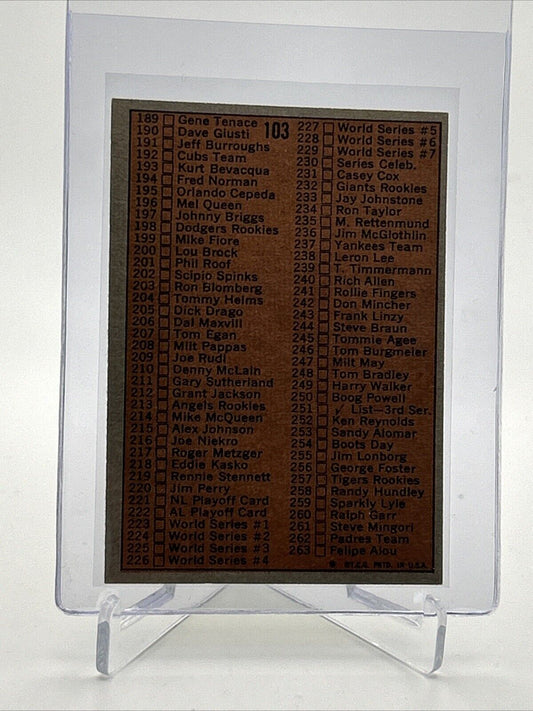 103
189 Gene Tenace
190 Dave Giusti
191 Jeff Burroughs
192 Cubs Team
193 Kurt Bevacqua
194 Fred Norman
195 Orlando Cepeda
196 Mel Queen
197 Johnny Briggs
198 Dodgers Rookies
199 Mike Fiore
200 Lou Brock
201 Phil Roof
202 Scipio Spinks
203 Ron Blomberg
204 Tommy Helms
205 Dick Drago
206 Dal Maxvill
207 Tom Egan
208 Milt Pappas
209 Joe Rudi
210 Denny McLain
211 Gary Sutherland
212 Grant Jackson
213 Angels Rookies
214 Mike McQueen
215 Alex Johnson
216 Joe Niekro
217 Roger Metzger
218 Eddie Kasko
219 Rennie Stennett
220 Jim Perry
221 NL Playoff Card
222 AL Playoff Card
223 World Series #1
224 World Series #2
225 World Series #3
226 World Series #4
227 World Series #5
228 World Series #6
229 World Series #7
230 Series Celeb.
231 Casey Cox
232 Giants Rookies
233 Jay Johnstone
234 Ron Taylor
235 M. Rettenmund
236 Jim McGlothlin
237 Yankees Team
238 Leron Lee
239 T. Timmermann
240 Rich Allen
241 Rollie Fingers
242 Don Mincher
243 Frank Linzy
244 Steve Braun
245 Tommie Agee
246 Tom Burgmeier
247 Milt May
248 Tom Bradley
249 Harry Walker
250 Boog Powell
251 ✓ List—3rd Ser.
252 Ken Reynolds
253 Sandy Alomar
254 Boots Day
255 Jim Lonborg
256 George Foster
257 Tigers Rookies
258 Randy Hundley
259 Sparkly Lyle
260 Ralph Garr
261 Steve Mingori
262 Padres Team
263 Felipe Alou
© T.C.G. PRTD. IN U.S.A.